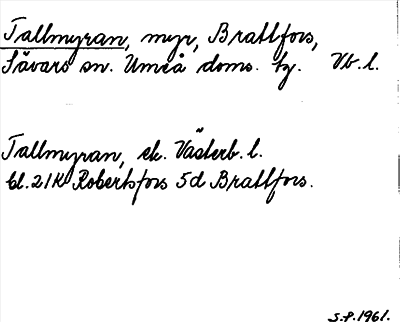 Tallmyran, myr, Brattfors,
Sävars sn. Umeå doms. tg. Vb. l.
Tallmyran, ek. Västerb. l.
bl. 21K Robertsfors 5d Brattfors.
S.P. 1961.